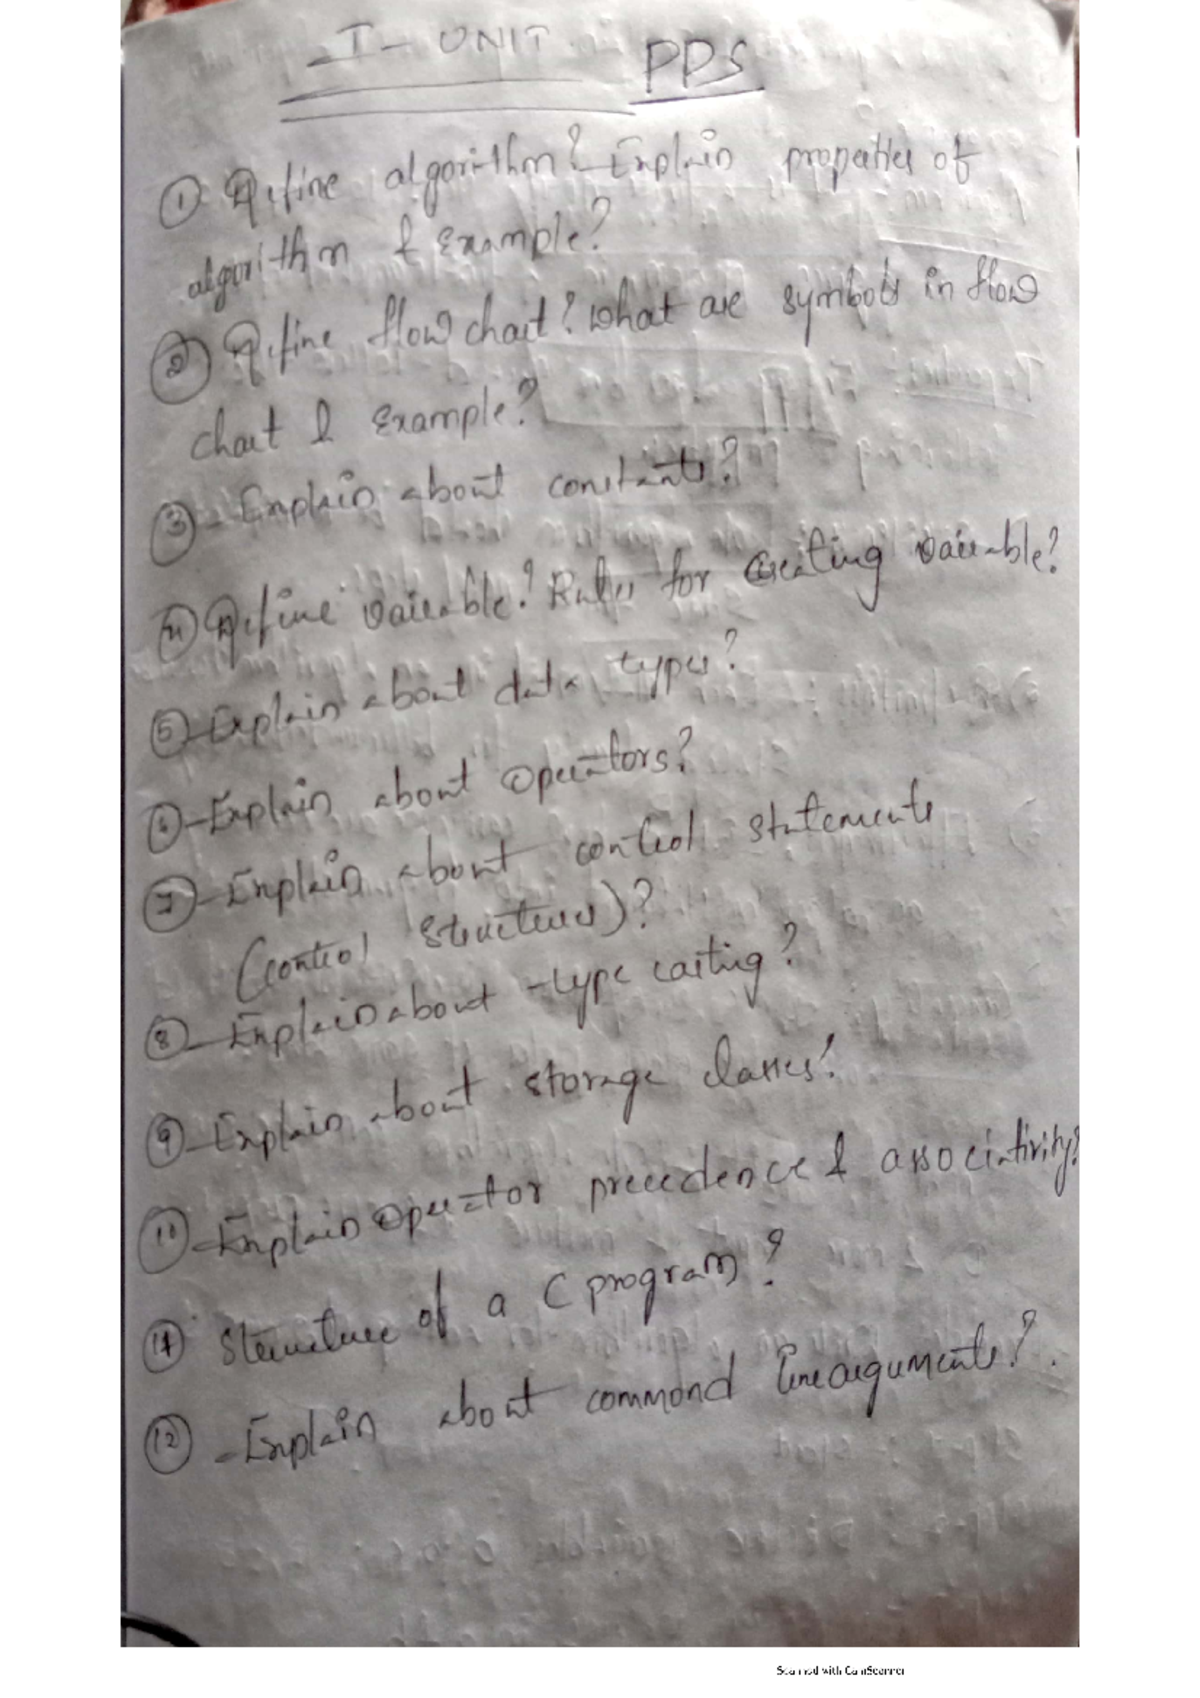 I - UNIT PPS
① Define algorithm? Explain properties of
algorithm & Example?
② Define flow chart? What are symbols in flow
chart & Example?
③ Explain about constants?
④ Define variable? Rules for creating variable?
⑤ Explain about data types?
⑥ Explain about operators?
⑦ Explain about control statements
(control structures)?
⑧ Explain about type casting?
⑨ Explain about storage classes?
⑩ Explain operator precedence & associativity?
⑪ Structure of a C program?
⑫ Explain about commond line arguments?.
Scanned with CamScanner